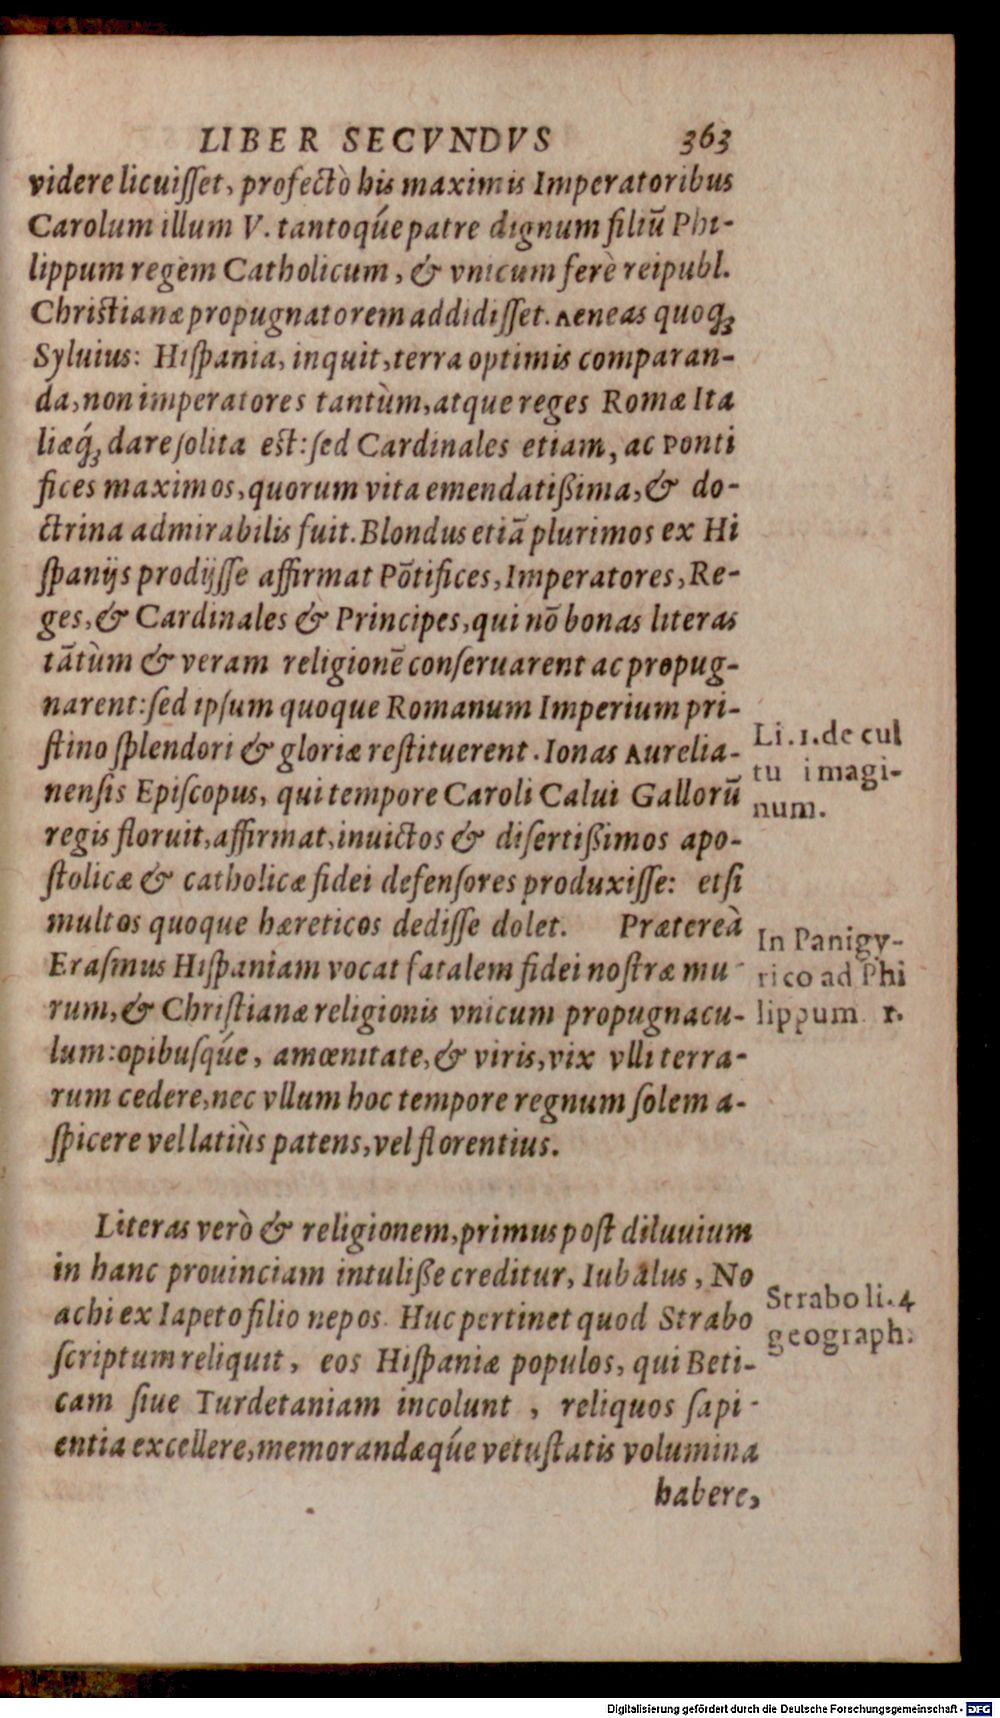 LIBER SECVNDVS 363
videre licuiſſet, profectò his maximis Imperatoribus
Carolum illum V. tantoq́ue patre dignum filiũ Phi-
lippum regem Catholicum, & vnicum ferè reipubl.
Chriſtianæ propugnatorem addidiſſet. Aeneas quoq;
Syluius: Hiſpania, inquit, terra optimis comparan-
da, non imperatores tantùm, atque reges Romæ Ita
liæq́; dare ſolita eſt: ſed Cardinales etiam, ac Ponti
fices maximos, quorum vita emendatißima, & do-
ctrina admirabilis fuit. Blondus etiã plurimos ex Hi
ſpanijs prodijſſe affirmat Põtifices, Imperatores, Re-
ges, & Cardinales & Principes, qui nõ bonas literas
tãtùm & veram religionẽ conſeruarent ac propug-
narent: ſed ipſum quoque Romanum Imperium pri-
ſtino ſplendori & gloriæ reſtituerent. Ionas Aurelia-
nenſis Epiſcopus, qui tempore Caroli Calui Gallorũ
regis floruit, affirmat, inuictos & diſertißimos apo-
ſtolicæ & catholicæ fidei defenſores produxiſſe: etſi
multos quoque hæreticos dediſſe dolet. Prætereà
Eraſmus Hiſpaniam vocat fatalem fidei noſtræ mu-
rum, & Chriſtianæ religionis vnicum propugnacu-
lum: opibuſq́ue, amœnitate, & viris, vix vlli terra-
rum cedere, nec vllum hoc tempore regnum ſolem a-
ſpicere vel latiùs patens, vel florentius.
Li. 1. de cul
tu imagi-
num.
In Panigy-
rico ad Phi
lippum 1.
Literas verò & religionem, primus poſt diluuium
in hanc prouinciam intuliße creditur, Iubalus, No
achi ex Iapeto filio nepos. Huc pertinet quod Strabo
ſcriptum reliquit, eos Hiſpaniæ populos, qui Beti-
cam ſiue Turdetaniam incolunt, reliquos ſapi-
entia excellere, memorandæq́ue vetuſtatis volumina
habere,
Strabo li. 4
geograph.
Digitalisierung gefördert durch die Deutsche Forschungsgemeinschaft - DFG